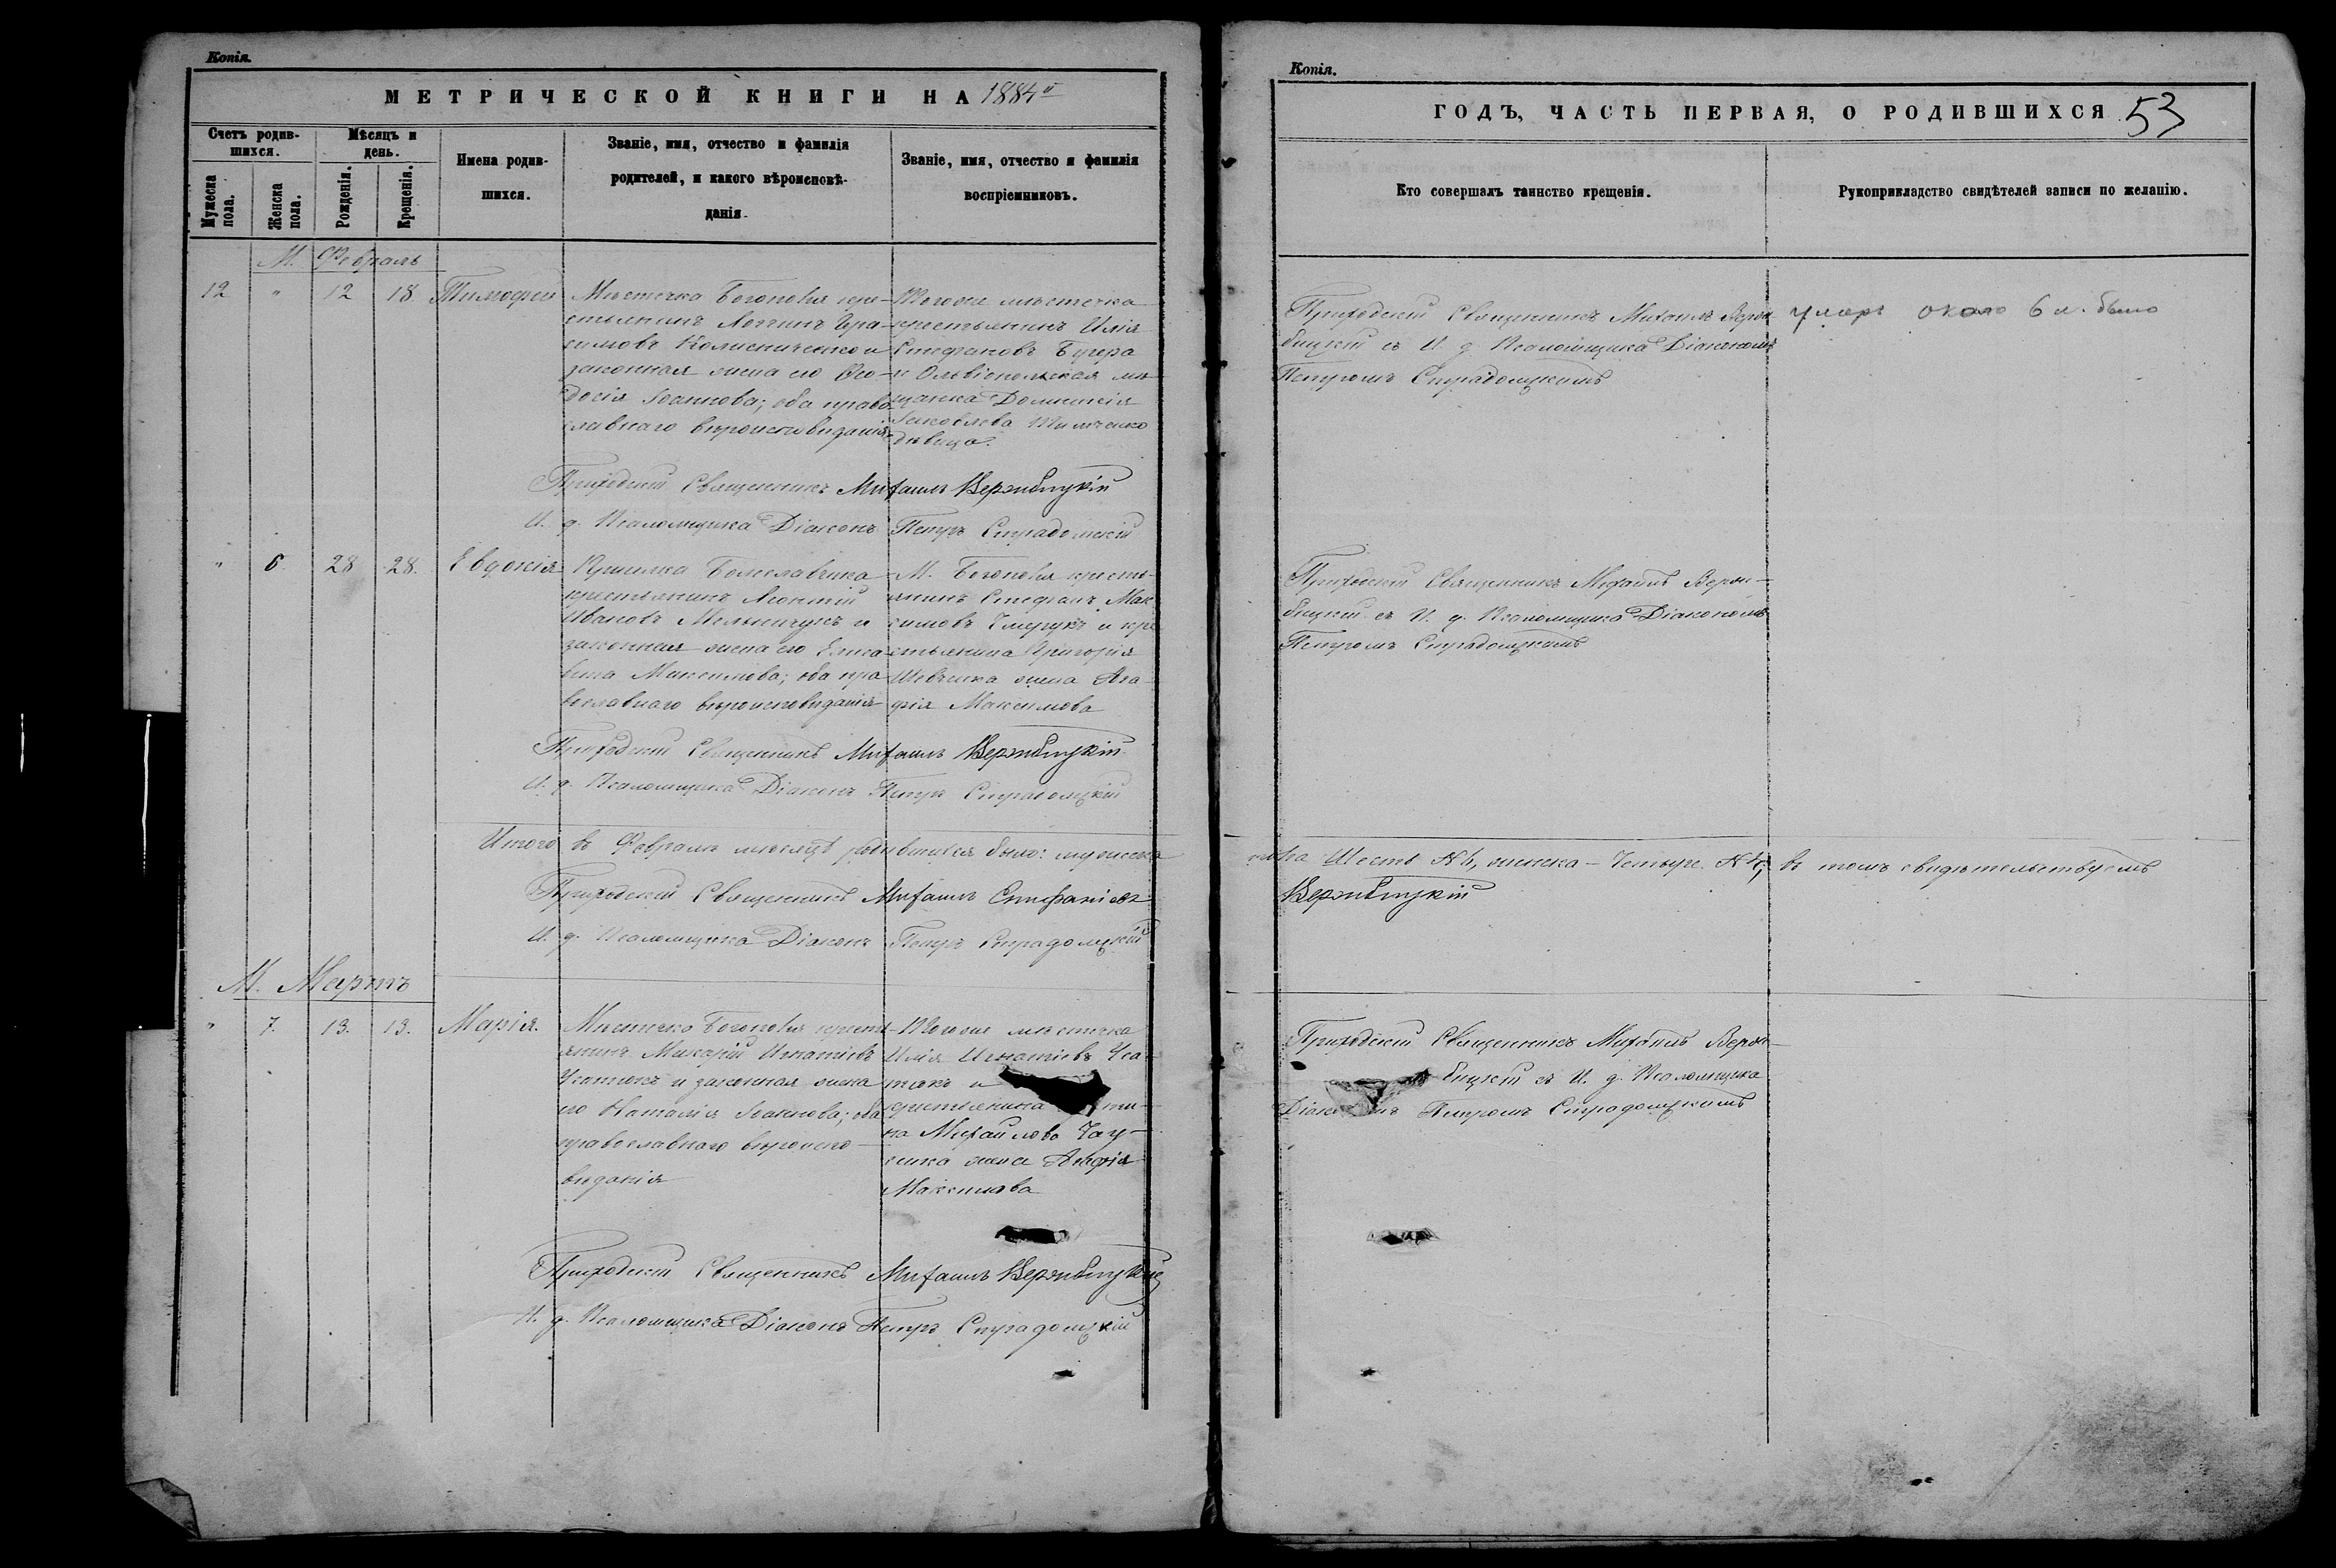 Копія.
МЕТРИЧЕСКОЙ КНИГИ НА 1884й
Счетъ родив-
шихся.
Мѣсяцъ и
день.
Мужеска
пола.
Женска
пола.
Рожденія.
Крещенія.
Имена родив-
шихся.
Званіе, имя, отчество и фамилія
родителей, и какого вѣроисповѣ-
данія.
Званіе, имя, отчество и фамилія
воспріемниковъ.
М. Февраль
12 " 12 18. Тимофей
Мѣстечка Богополя кре-
стьянинъ Логгинъ Гра-
симовъ Колисниченко и
законная жена его Ѳео-
досія Іоаннова; оба право-
славнаго вѣроисповѣданія
Тогоже мѣстечка
крестьянинъ Илія
Стефановъ Бугера
и Ольвіопольская мѣ-
щанка Домникія
Іаковлева
дѣвица.
Приходскій Священникъ Михаилъ Вержбицкій
И. д. Псаломщика Діаконъ Петръ Страдомскій
" 6. 28 28. Евдокія
Болеславчика
крестьянинъ Леонтій
Ивановъ Мельничукъ и
законная жена его Елиса-
вета Максимова; оба пра-
вославнаго вѣроисповѣданія
М. Богополя кресть-
янинъ Стефанъ Мак-
симовъ и кре-
стьянина Григорія
Шевченка жена Ага-
фія Максимова
Приходскій Священникъ Михаилъ Вержбицкій
И. д. Псаломщика Діаконъ Петръ Страдомскій
Итого въ Февралѣ мѣсяцѣ родившихся было: мужеска
Приходскій Священникъ Михаилъ Стефаніевъ
И. д. Псаломщика Діаконъ Петръ Страдомскій
М. Мартъ
" 7. 13. 13. Марія.
Мѣстечка Богополя кресть-
янинъ Макарій Игнатіевъ
Усатюкъ и законная жена
его Наталія Іоаннова; оба
православнаго вѣроиспо-
вѣданія
Тогоже мѣстечка
Илія Игнатіевъ Уса-
тюкъ и
крестьянина
на Михайлова
жена Агафія
Максимова
Приходскій Священникъ Михаилъ Вержбицкій
И. д. Псаломщика Діаконъ Петръ Страдомскій
Копія.
ГОДЪ, ЧАСТЬ ПЕРВАЯ, О РОДИВШИХСЯ 53
Кто совершалъ таинство крещенія.
Рукоприкладство свидѣтелей записи по желанію.
Приходскій Священникъ Михаилъ Верж-
бицкій съ И. д. Псаломщика Діакономъ
Петромъ Страдомскимъ
умеръ около 6 л. было
Приходскій Священникъ Михаилъ Верж-
бицкій съ И. д. Псаломщика Діакономъ
Петромъ Страдомскимъ
пола Шесть женска – Четыре. въ томъ свидѣтельствуемъ
Вержбицкій
Приходскій Священникъ Михаилъ Верж-
бицкій съ И. д. Псаломщика
Петромъ Страдомскимъ